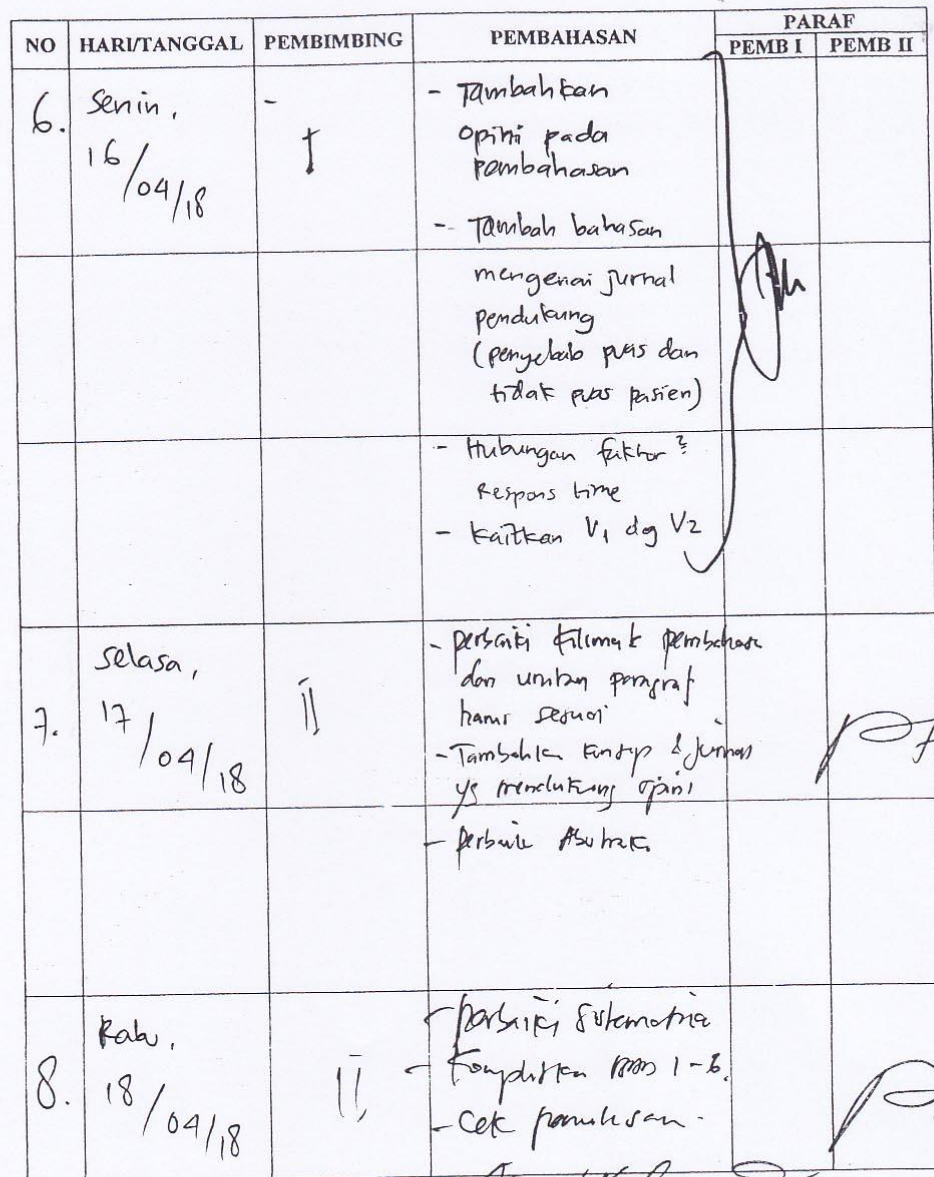 NO HARI/TANGGAL PEMBIMBING PEMBAHASAN PARAF
PEMB I PEMB II
6. Senin, - - Tambahkan
16/04/18 I opini pada
pembahasan
- Tambah bahasan
mengenai jurnal
pendukung
(penyebab puas dan
tidak puas pasien)
- Hubungan faktor²
Respons time
- kaitkan V1 dg V2
7. Selasa, II - perbaiki pembahasa
17/04/18 dan urutan paragraf
harus sesuai
- Tambahka konsep & jurnal
yg mendukung opini
- perbaiki Abstrak
8. Rabu, II - perbaiki sistematika
18/04/18 - BAB 1-6.
- Cek penulisan.